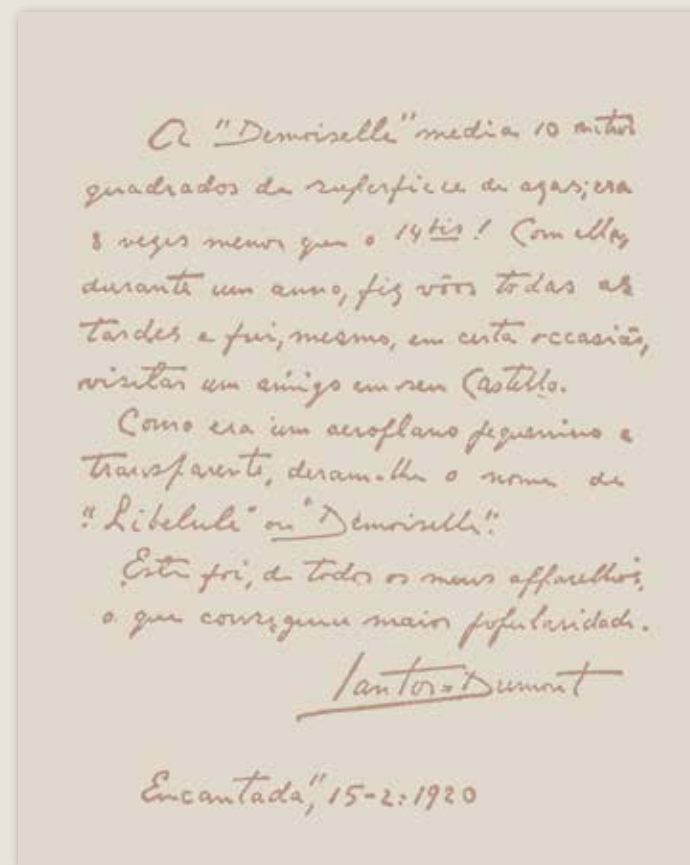 A "Demoiselle" media 10 metros
quadrados de superficie de azas; era
8 vezes menor que o 14 bis! Com ella,
durante um anno, fiz vôos todas as
tardes e fui, mesmo, em certa occasião,
visitar um amigo em seu Castello.
Como era um aeroplano pequenino e
transparente, deram-lhe o nome de
"Libelule" ou "Demoiselle".
Este foi, de todos os meus apparelhos,
o que conseguiu maior popularidade.
Santos=Dumont
Encantada", 15-2-1920